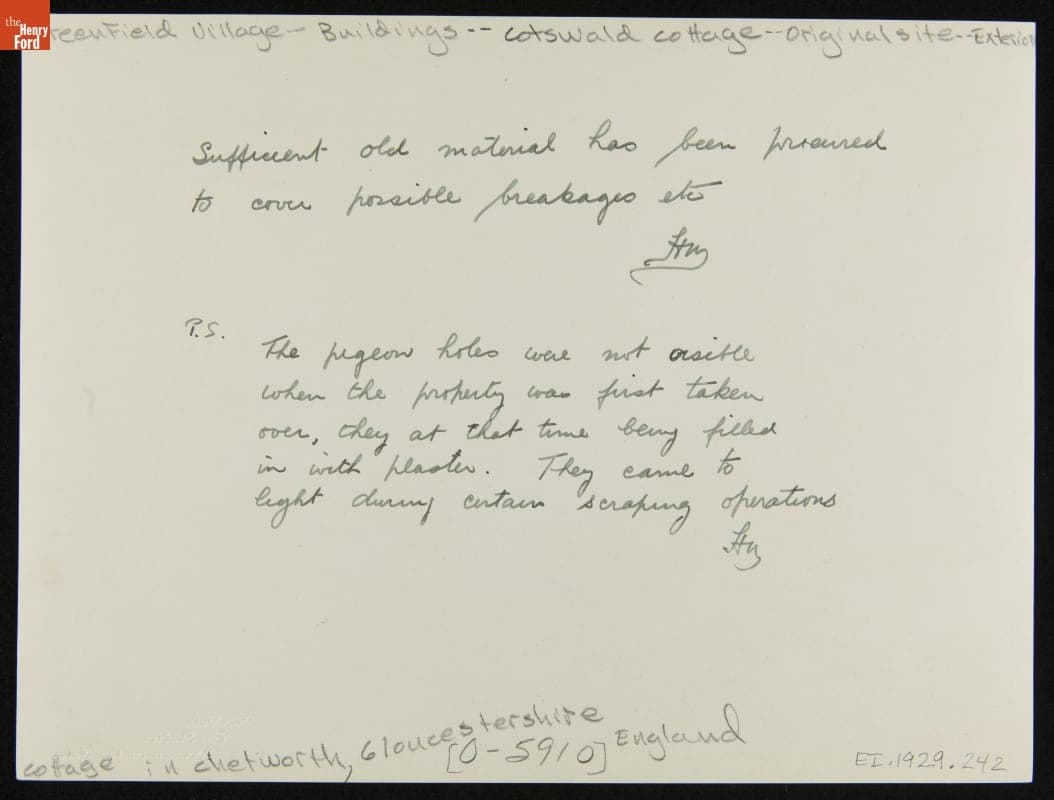 the
Henry
Ford
reenField Village - Buildings -- cotswald cottage -- Original site -- Exterior
Sufficient old material has been procured
to cover possible breakages etc
P.S.
The pigeon holes were not visible
when the property was first taken
over, they at that time being filled
in with plaster. They came to
light during certain scraping operations
cottage in chetworth, Gloucestershire England
[0-5910]
EI.1929.242